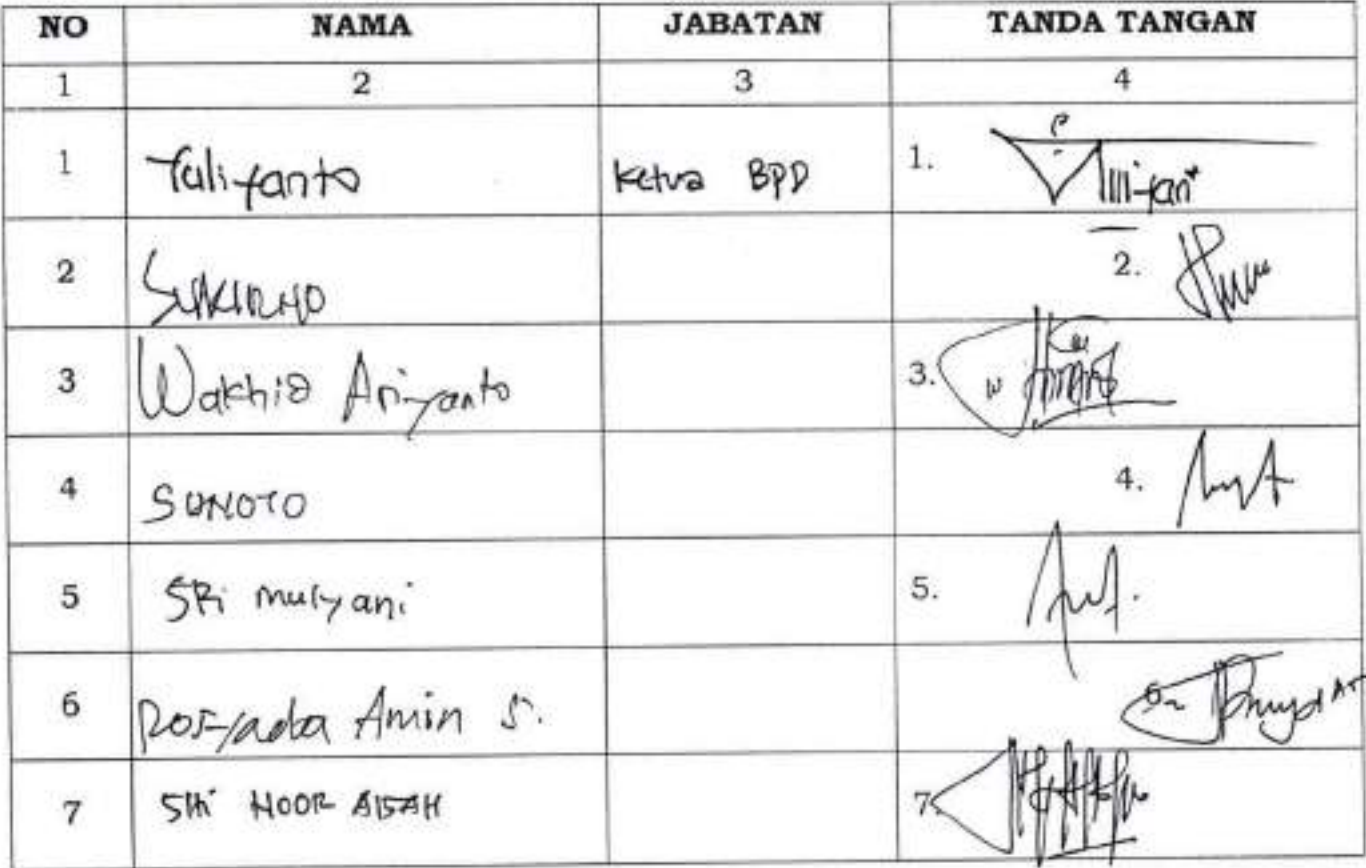 NO NAMA JABATAN TANDA TANGAN
1 2 3 4
1 Yuliyanto Ketua BPD 1.
2 SUKIRNO 2.
3 Wakhid Ariyanto 3.
4 SUNOTO 4.
5 SRi mulyani 5.
6 Rosyada Amin S. 6
7 SRi NOOR AISAH 7